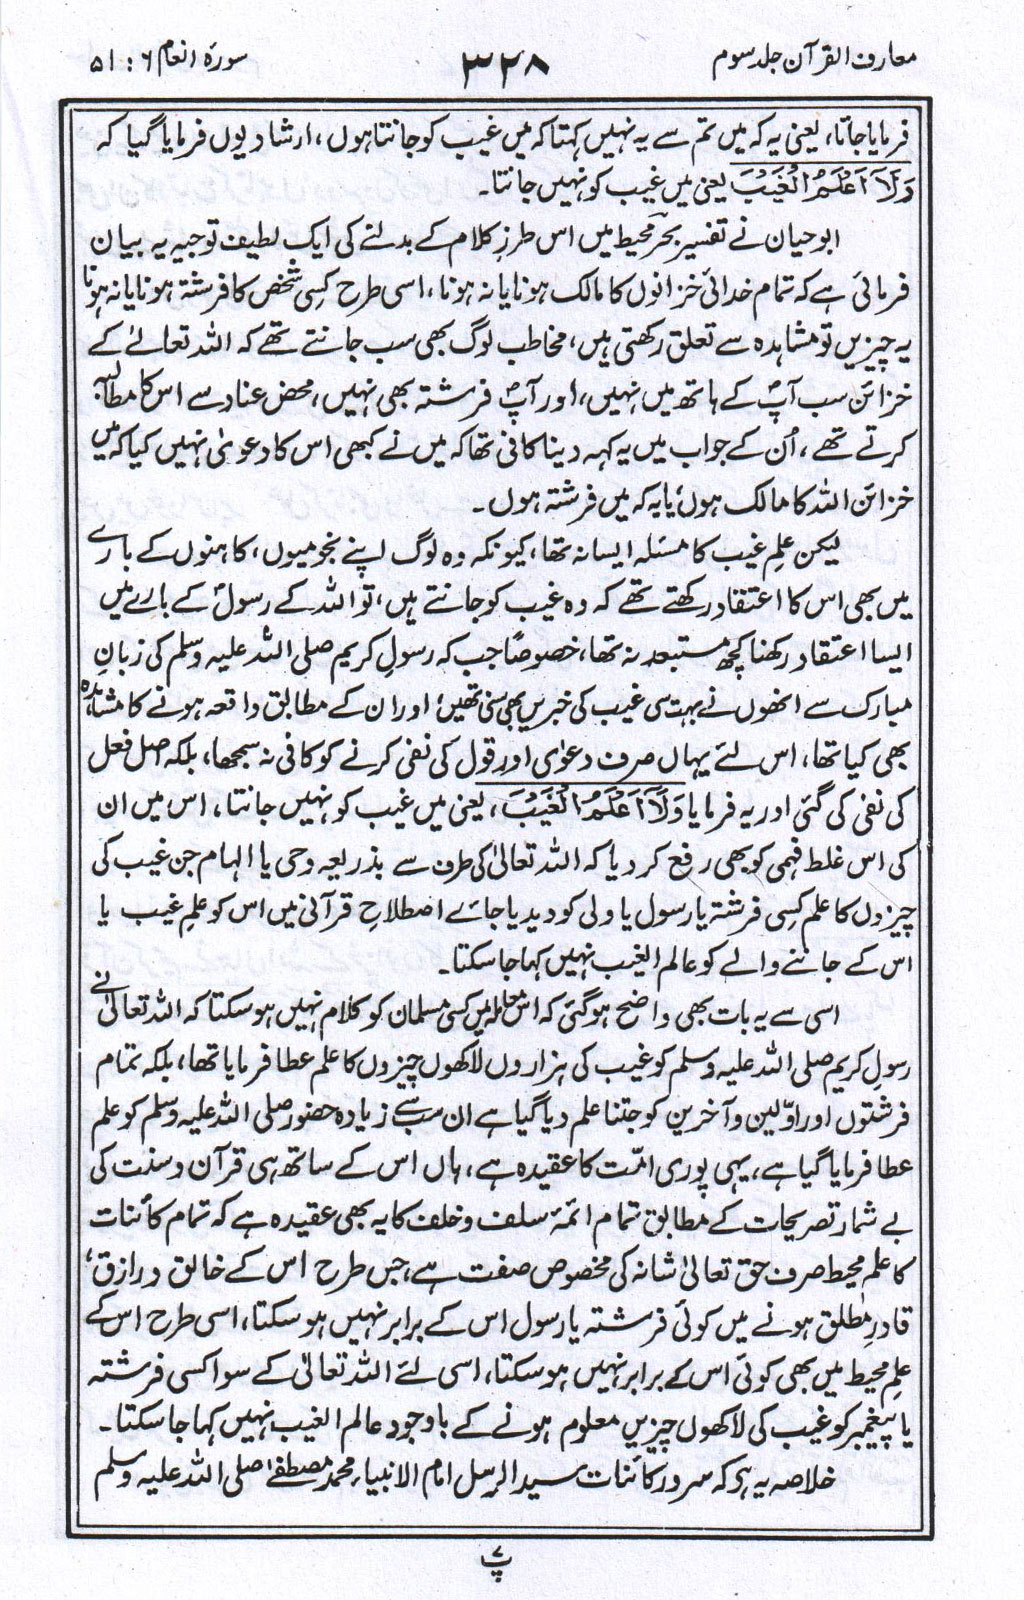 معارف القرآن جلد سوم
۳۲۸
سورۂ انعام ۶ : ۵۱
فرمایا جاتا، یعنی یہ کہ میں تم سے یہ نہیں کہتا کہ میں غیب کو جانتا ہوں، ارشاد یوں فرمایا گیا کہ
وَلَآ اَعْلَمُ الْغَيْبَ یعنی میں غیب کو نہیں جانتا۔
ابوحیان نے تفسیر بحر محیط میں اس طرزِ کلام کے بدلنے کی ایک لطیف توجیہ یہ بیان
فرمائی ہے کہ تمام خدائی خزانوں کا مالک ہونا یا نہ ہونا، اسی طرح کسی شخص کا فرشتہ ہونا یا نہ ہونا
یہ چیزیں تو مشاہدہ سے تعلق رکھتی ہیں، مخاطب لوگ بھی سب جانتے تھے کہ اللہ تعالےٰ کے
خزائن سب آپؐ کے ہاتھ میں نہیں، اور آپؐ فرشتہ بھی نہیں، محض عناد سے اس کا مطالبہ
کرتے تھے، اُن کے جواب میں یہ کہہ دینا کافی تھا کہ میں نے کبھی اس کا دعویٰ نہیں کیا کہ میں
خزائن اللہ کا مالک ہوں یا یہ کہ میں فرشتہ ہوں۔
لیکن علمِ غیب کا مسئلہ ایسا نہ تھا، کیونکہ وہ لوگ اپنے نجومیوں، کاہنوں کے بارے
میں بھی اس کا اعتقاد رکھتے تھے کہ وہ غیب کو جانتے ہیں، تو اللہ کے رسولؐ کے بارے میں
ایسا اعتقاد رکھنا کچھ مستبعد نہ تھا، خصوصًا جب کہ رسولِ کریم صلی اللہ علیہ وسلم کی زبانِ
مبارک سے انھوں نے بہت سی غیب کی خبریں بھی سنی تھیں، اور ان کے مطابق واقعہ ہونے کا مشاہدہ
بھی کیا تھا، اس لئے یہاں صرف دعوٰی اور قول کی نفی کرنے کو کافی نہ سمجھا، بلکہ اصل فعل
کی نفی کی گئی اور یہ فرمایا وَلَآ اَعْلَمُ الْغَيْبَ، یعنی میں غیب کو نہیں جانتا، اس میں ان
کی اس غلط فہمی کو بھی رفع کر دیا کہ اللہ تعالیٰ کی طرف سے بذریعہ وحی یا الہام جن غیب کی
چیزوں کا علم کسی فرشتہ یا رسول یا ولی کو دیدیا جائے اصطلاحِ قرآنی میں اس کو علمِ غیب یا
اس کے جاننے والے کو عالم الغیب نہیں کہا جا سکتا۔
اسی سے یہ بات بھی واضح ہوگئی کہ اس معاملہ میں کسی مسلمان کو کلام نہیں ہو سکتا کہ اللہ تعالیٰ نے
رسولِ کریم صلی اللہ علیہ وسلم کو غیب کی ہزاروں لاکھوں چیزوں کا علم عطا فرمایا تھا، بلکہ تمام
فرشتوں اور اوّلین و آخرین کو جتنا علم دیا گیا ہے ان سب سے زیادہ حضور صلی اللہ علیہ وسلم کو علم
عطا فرمایا گیا ہے، یہی پوری امّت کا عقیدہ ہے، ہاں اس کے ساتھ ہی قرآن و سنت کی
بے شمار تصریحات کے مطابق تمام ائمۂ سلف و خلف کا یہ بھی عقیدہ ہے کہ تمام کائنات
کا علم محیط صرف حق تعالیٰ شانہ کی مخصوص صفت ہے، جس طرح اس کے خالق و رازق،
قادرِ مطلق ہونے میں کوئی فرشتہ یا رسول اس کے برابر نہیں ہو سکتا، اسی طرح اس کے
علمِ محیط میں بھی کوئی اس کے برابر نہیں ہو سکتا، اسی لئے اللہ تعالیٰ کے سوا کسی فرشتہ
یا پیغمبر کو غیب کی لاکھوں چیزیں معلوم ہونے کے باوجود عالم الغیب نہیں کہا جا سکتا۔
خلاصہ یہ ہو کہ سرورِ کائنات سید الرسل امام الانبیاء محمد مصطفےٰ صلی اللہ علیہ وسلم